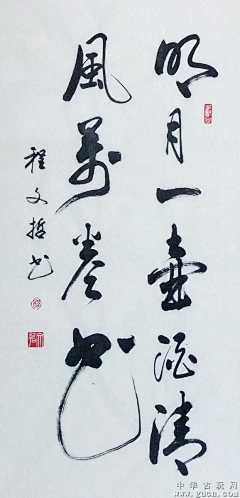 明月一壶酒清
风万卷书
程文哲书
中华古玩网
www.gucn.com